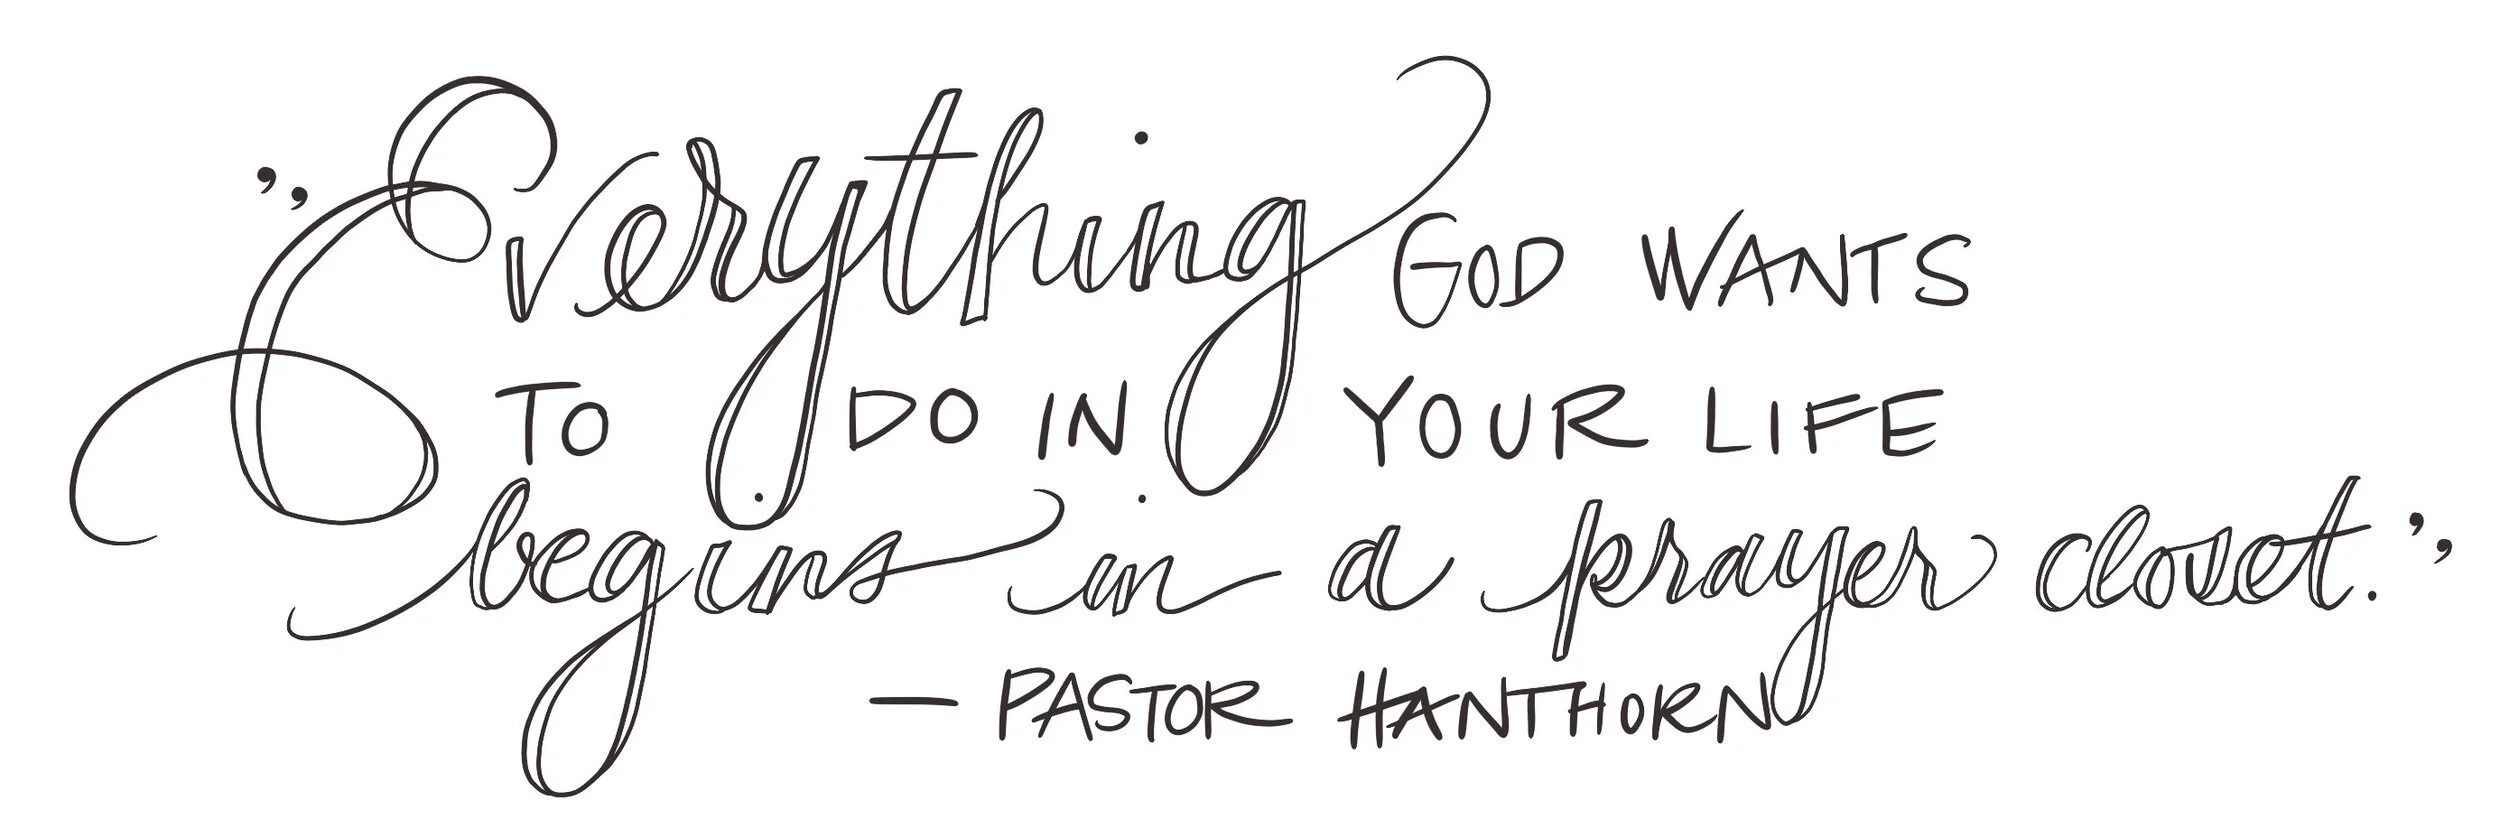 "Everything GOD WANTS
TO DO IN YOUR LIFE
begins in a prayer closet."
— PASTOR HANTHORN